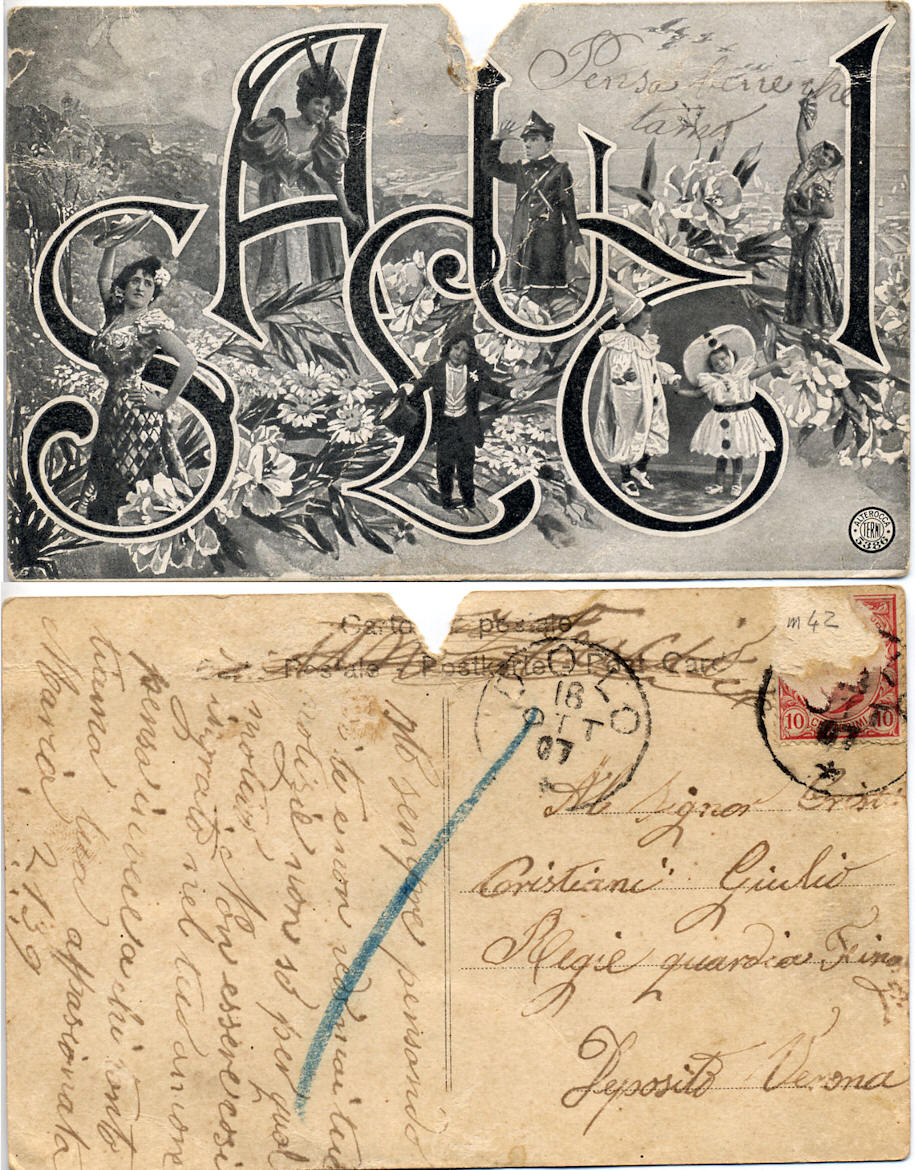 SALUTI
Pensa bene che
tamo
ALTEROCCA
TERNI
5386
Carto postale
Postale Postkarte Post Card
m 42
DOLO
18
OTT
07
10 10
07
Al Signor
Cristiani Giulio
Regie guardia Fina
Deposito Verona
sempre pensando
a te e non vedo mai tue
notizie non so per qual
motivo Non essere cosi
ingrato nel tuo amore
pensa invece a chi tanto
t'ama tua affasionata
Maria 2.1.3.9